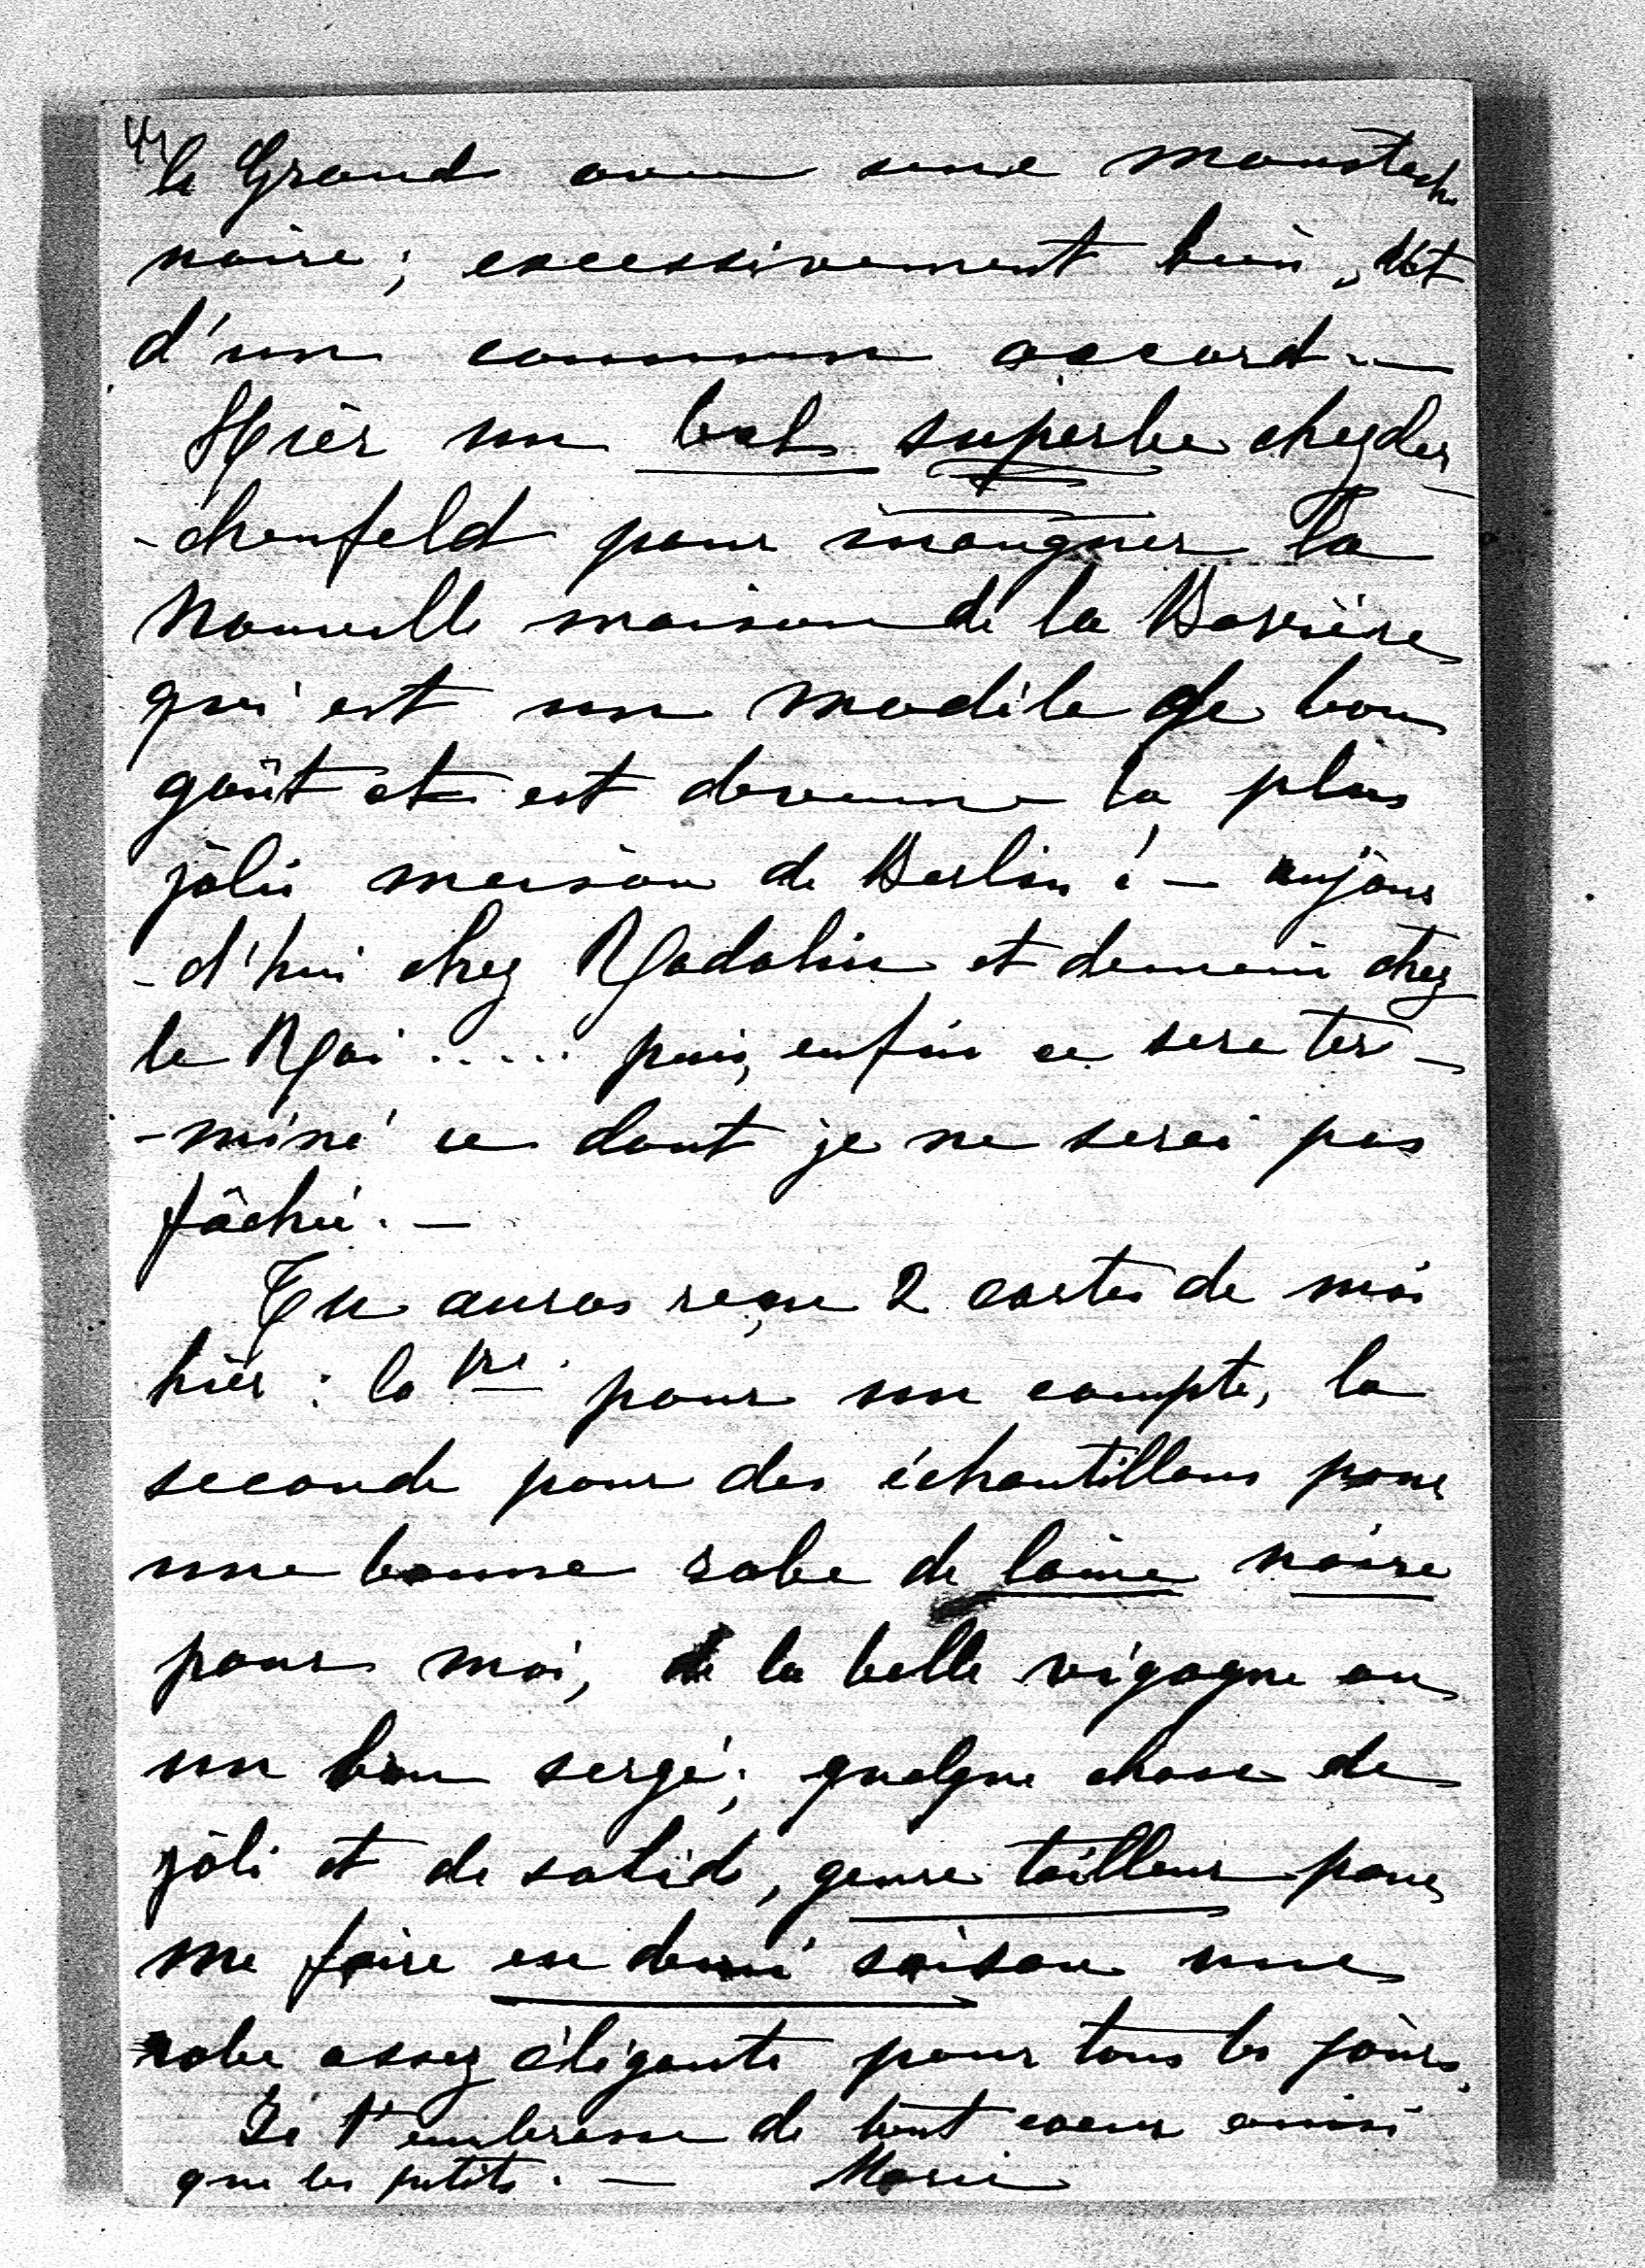 44
le Grand avec une moustache
noire; excessivement bien,
d'un commun accord. —
Hier un bal superbe chez Ler
-chenfeld pour inaugurer la
nouvelle maison de la Bavière
qui est un modèle de bon
goût et est devenue la plus
jolie maison de Berlin! — aujour
-d'hui chez Radolin et demain chez
le Roi ..... puis, enfin ce sera ter-
-miné ce dont je ne serai pas
fâchée. —
Tu auras reçu 2 cartes de moi
hier: la 1re pour un compte, la
seconde pour des échantillons pour
une bonne robe de laine noire
pour moi, de la belle vigogne ou
un bon sergé; quelque chose de
joli et de solide, genre tailleur pour
me faire en demi saison une
robe assez élégante pour tous les jours.
Je t'embrasse de tout coeur ainsi
que les petits. — Marie